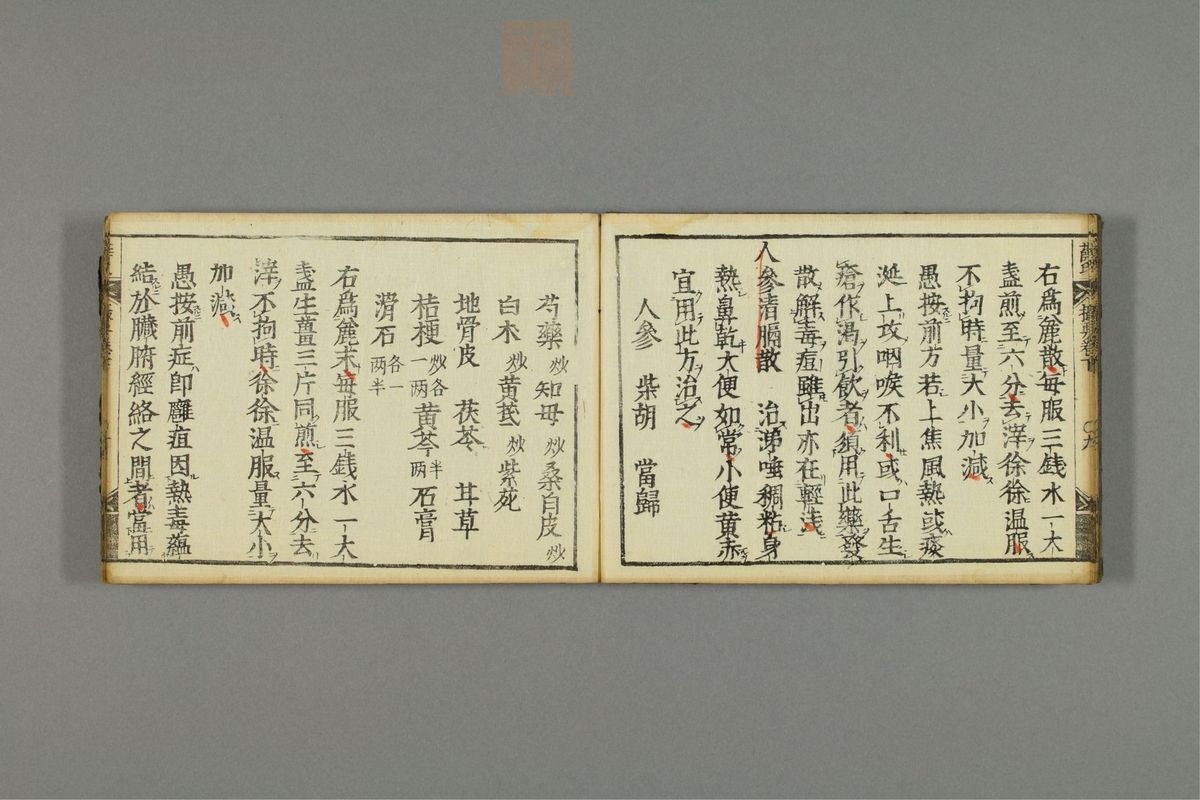 右爲麄散毎服三銭水一大
盞煎至六分去滓徐徐温服
不拘時量大小加減
愚按前方若上焦風熱或痰
涎上攻咽喉不利或口舌生
瘡作渇引飲者須用此藥發
散解毒痘雖出亦在輕浅
人參清膈散 治涕唾稠粘身
熱鼻乾大便如常小便黄赤
宜用此方治之
人參 柴胡 當歸
芍藥炒 知母炒 桑白皮炒
白朮炒 黄芪炒 紫苑
地骨皮 茯苓 甘草
桔梗炒各一两 黄芩半两 石膏
滑石各一两半
右爲麄末毎服三銭水一大
盞生薑三片同煎至六分去
滓不拘時徐徐温服量大小
加減
愚按前症卽癰疽因熱毒蘊
結於臟腑經絡之間者當用